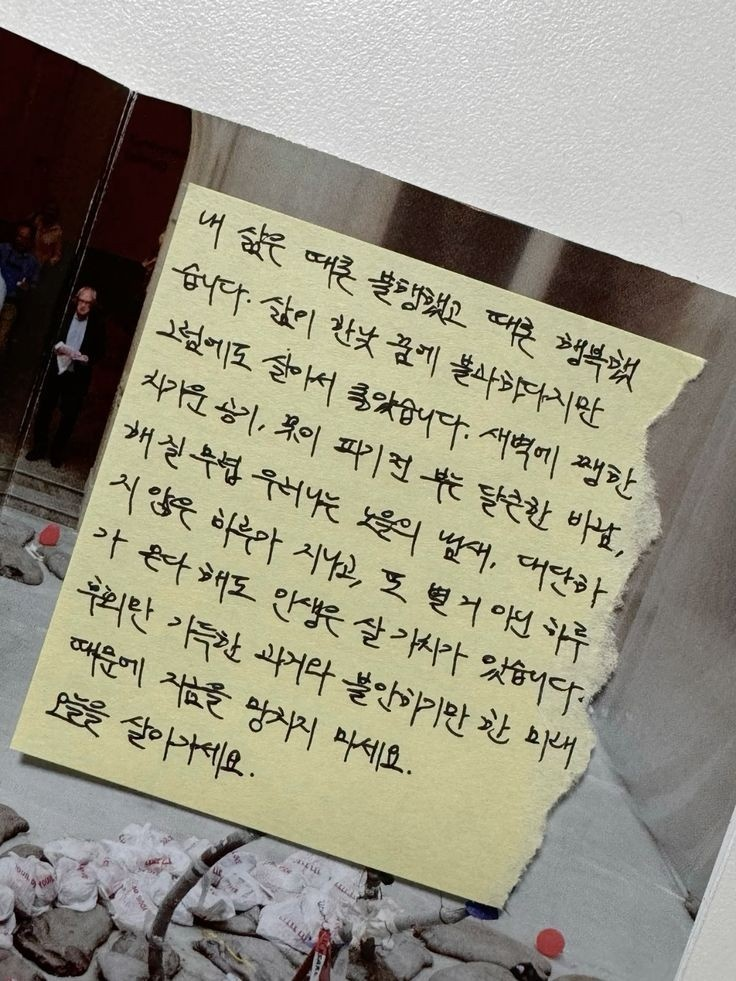 내 삶은 때론 불행했고 때론 행복했
습니다. 삶이 한낯 꿈에 불과하다지만
그럼에도 살아서 좋았습니다. 새벽에 쨍한
차가운 공기, 꽃이 피기 전 부는 달큰한 바람,
해 질 무렵 우러나는 노을의 냄새, 대단하
지 않은 하루가 지나고, 또 별 거 아닌 하루
가 온다 해도 인생은 살 가치가 있습니다.
후회만 가득한 과거와 불안하기만 한 미래
때문에 지금을 망치지 마세요.
오늘을 살아가세요.